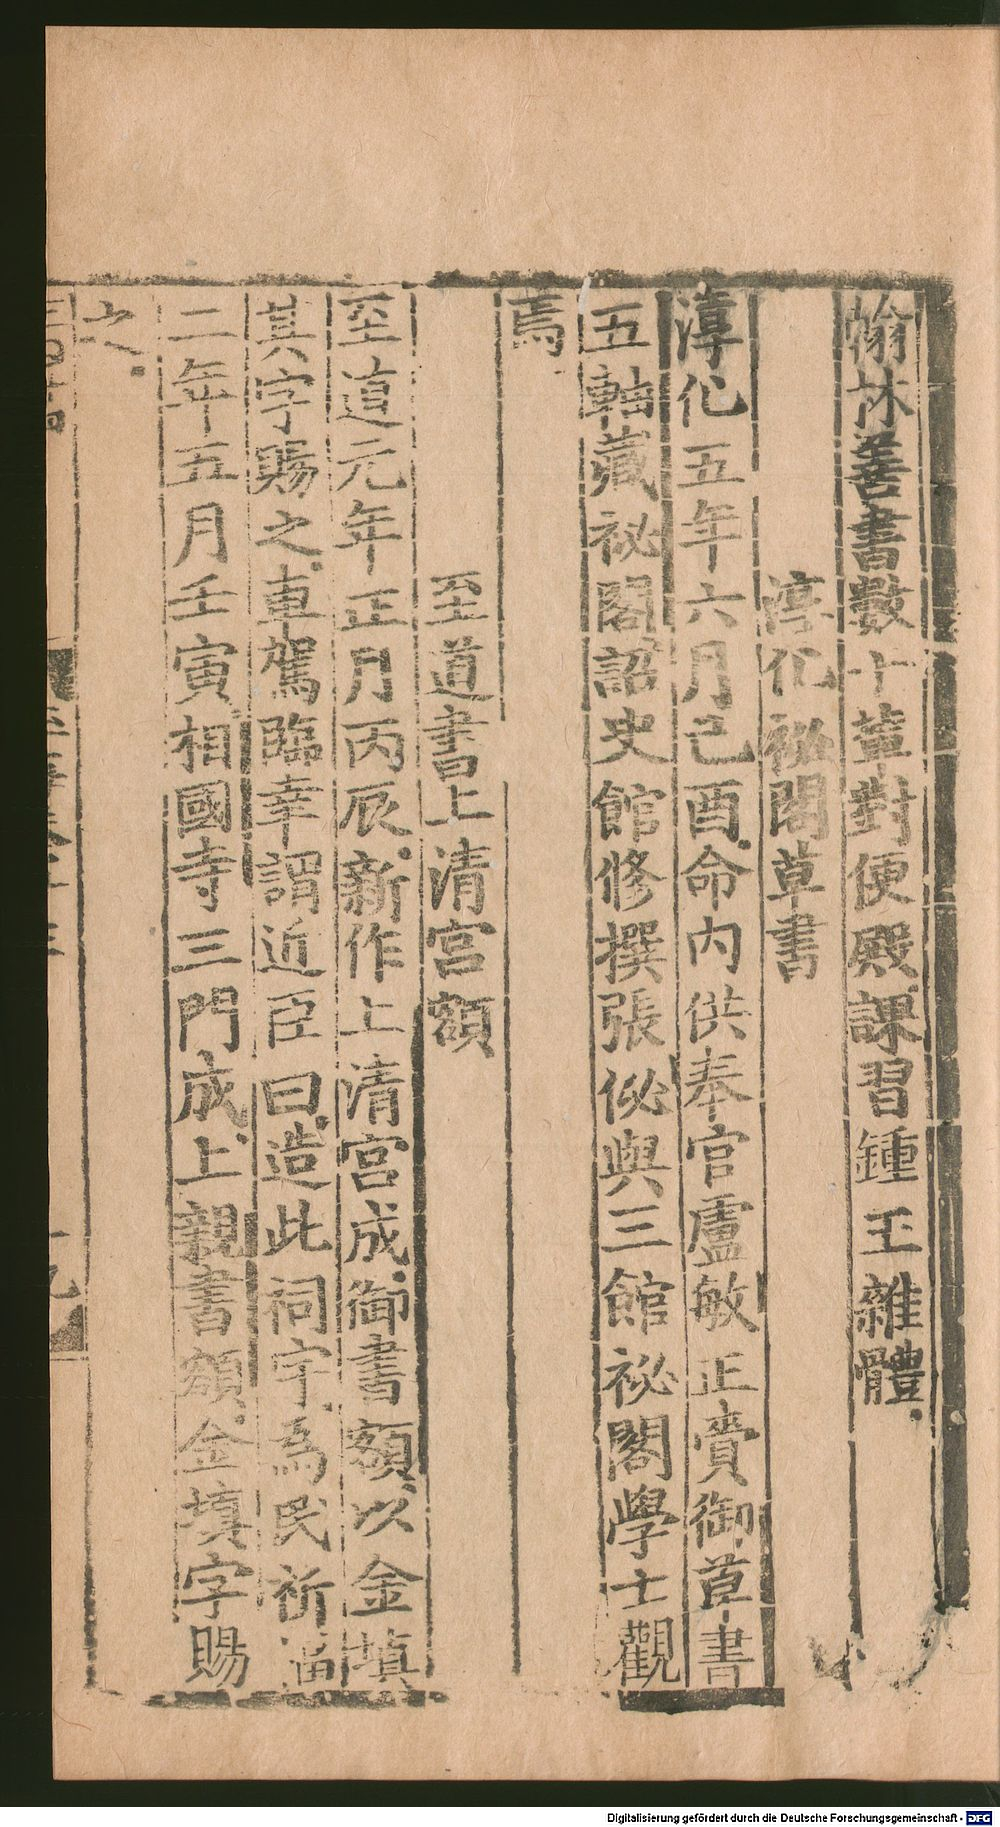 翰林善書數十輩對便殿課習鍾王雜體
淳化祕閣草書
淳化五年六月己酉命內供奉官盧敏正賫御草書
五軸藏祕閣詔史館修撰張佖與三館祕閣學士觀
焉
至道書上清宮額
至道元年正月丙辰新作上清宮成御書額以金填
其字賜之車駕臨幸謂近臣曰造此祠宇為民祈福
二年五月壬寅相國寺三門成上親書額金填字賜
之
Digitalisierung gefördert durch die Deutsche Forschungsgemeinschaft - DFG